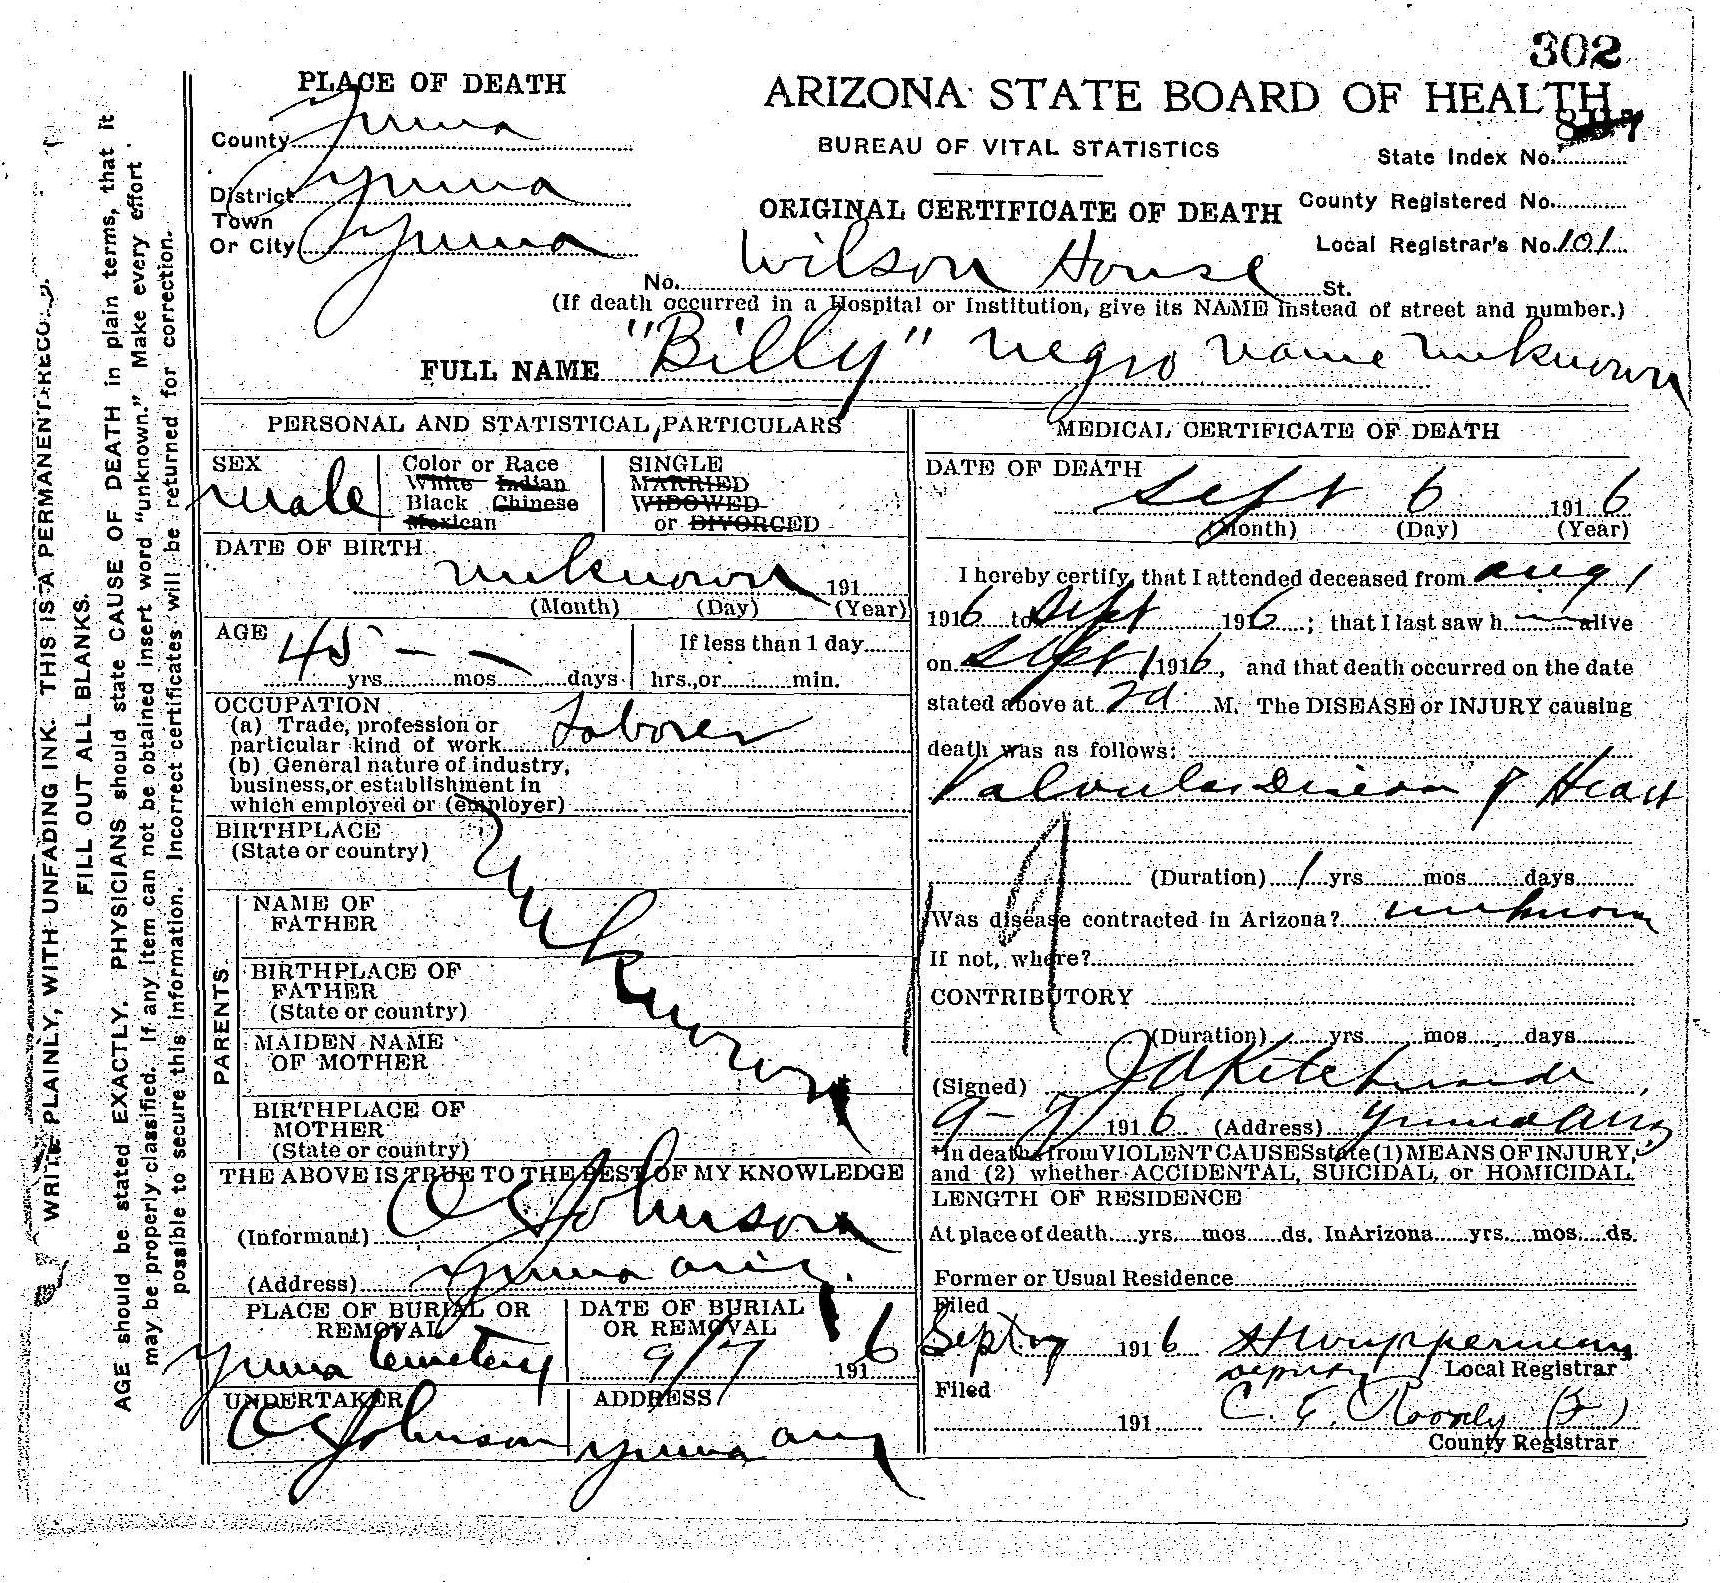 302
PLACE OF DEATH
ARIZONA STATE BOARD OF HEALTH
BUREAU OF VITAL STATISTICS
State Index No.
County Yuma
ORIGINAL CERTIFICATE OF DEATH
County Registered No.
District Yuma
Town
Or City Yuma
Local Registrar's No. 101
No. Wilson House St.
(If death occurred in a Hospital or Institution, give its NAME instead of street and number.)
FULL NAME "Billy" negro name unknown
WRITE PLAINLY, WITH UNFADING INK. THIS IS A PERMANENT RECO
FILL OUT ALL BLANKS.
AGE should be stated EXACTLY. PHYSICIANS should state CAUSE OF DEATH in plain terms, that it
may be properly classified. If any item can not be obtained insert word "unknown." Make every effort
possible to secure this information. Incorrect certificates will be returned for correction.
PERSONAL AND STATISTICAL PARTICULARS
SEX
male
Color or Race
White Indian
Black Chinese
Mexican
SINGLE
MARRIED
WIDOWED
or DIVORCED
DATE OF BIRTH
unknown 191
(Month) (Day) (Year)
AGE
45 yrs. — mos. — days
If less than 1 day
hrs., or min.
OCCUPATION
(a) Trade, profession or
particular kind of work Laborer
(b) General nature of industry,
business, or establishment in
which employed or (employer)
BIRTHPLACE
(State or country)
Unknown
PARENTS
NAME OF
FATHER
BIRTHPLACE OF
FATHER
(State or country)
MAIDEN NAME
OF MOTHER
BIRTHPLACE OF
MOTHER
(State or country)
THE ABOVE IS TRUE TO THE BEST OF MY KNOWLEDGE
(Informant) O C Johnson
(Address) Yuma Ariz.
PLACE OF BURIAL OR
REMOVAL
Yuma Cemetery
DATE OF BURIAL
OR REMOVAL
9/7 1916
UNDERTAKER
O C Johnson
ADDRESS
Yuma Ariz
MEDICAL CERTIFICATE OF DEATH
DATE OF DEATH
Sept 6 1916
(Month) (Day) (Year)
I hereby certify, that I attended deceased from Aug 1
1916 to Sept 1916; that I last saw h — alive
on Sept 1 1916, and that death occurred on the date
stated above at 2 a M. The DISEASE or INJURY causing
death was as follows:
Valvular Disease of Heart
(Duration) 1 yrs. mos. days
Was disease contracted in Arizona? unknown
If not, where?
CONTRIBUTORY
(Duration) yrs. mos. days
(Signed)
9-7 1916 (Address) Yuma Ariz
*In deaths from VIOLENT CAUSES state (1) MEANS OF INJURY,
and (2) whether ACCIDENTAL, SUICIDAL, or HOMICIDAL.
LENGTH OF RESIDENCE
At place of death yrs. mos. ds. In Arizona yrs. mos. ds.
Former or Usual Residence
Filed
Sept 7 1916
deputy Local Registrar
Filed
191
County Registrar